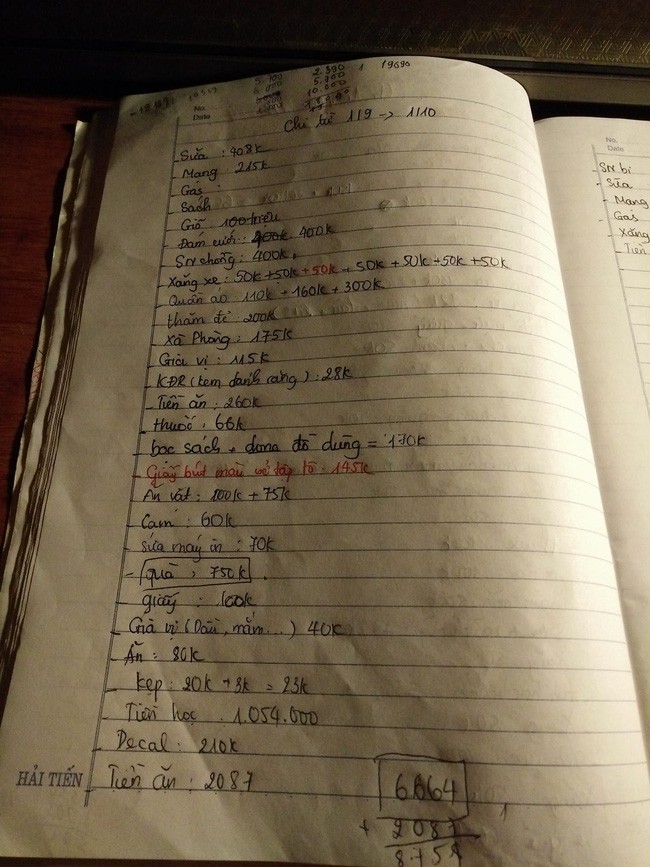 19517
5.700
2.390
1
19690
6.000
5.700
10.000
No.
Date
Chi từ 119 -> 1110
Sữa : 408k
Mạng : 215k
Gas :
Sách
Giỗ 100 triệu
Đám cưới : 400k
SN chồng : 400k
Xăng xe : 50k + 50k + 50k + 50k + 50k + 50k + 50k
Quần áo 110k + 160k + 300k
thăm đẻ 200k
Xà Phòng : 175k
Gia vị : 115k
KĐR (kem đánh răng) : 28k
Tiền ăn : 260k
thuốc : 66k
bọc sách + dụng đồ dùng = 170k
Giấy bút màu vẽ tập tô 145k
Ăn vặt : 100k + 75k
Cam : 60k
sửa máy in : 70k
- quà : 750k
giấy : 160k
Gia vị (Dầu, mắm...) 40k
Ăn : 80k
kẹp : 20k + 3k = 23k
Tiền học : 1.054.000
Decal : 210k
Tiền ăn : 2087
HẢI TIẾN
6664
+ 2087
No.
Date
SN bi
- Sữa
- Mạng
- Gas
- Xăng
- Tiền